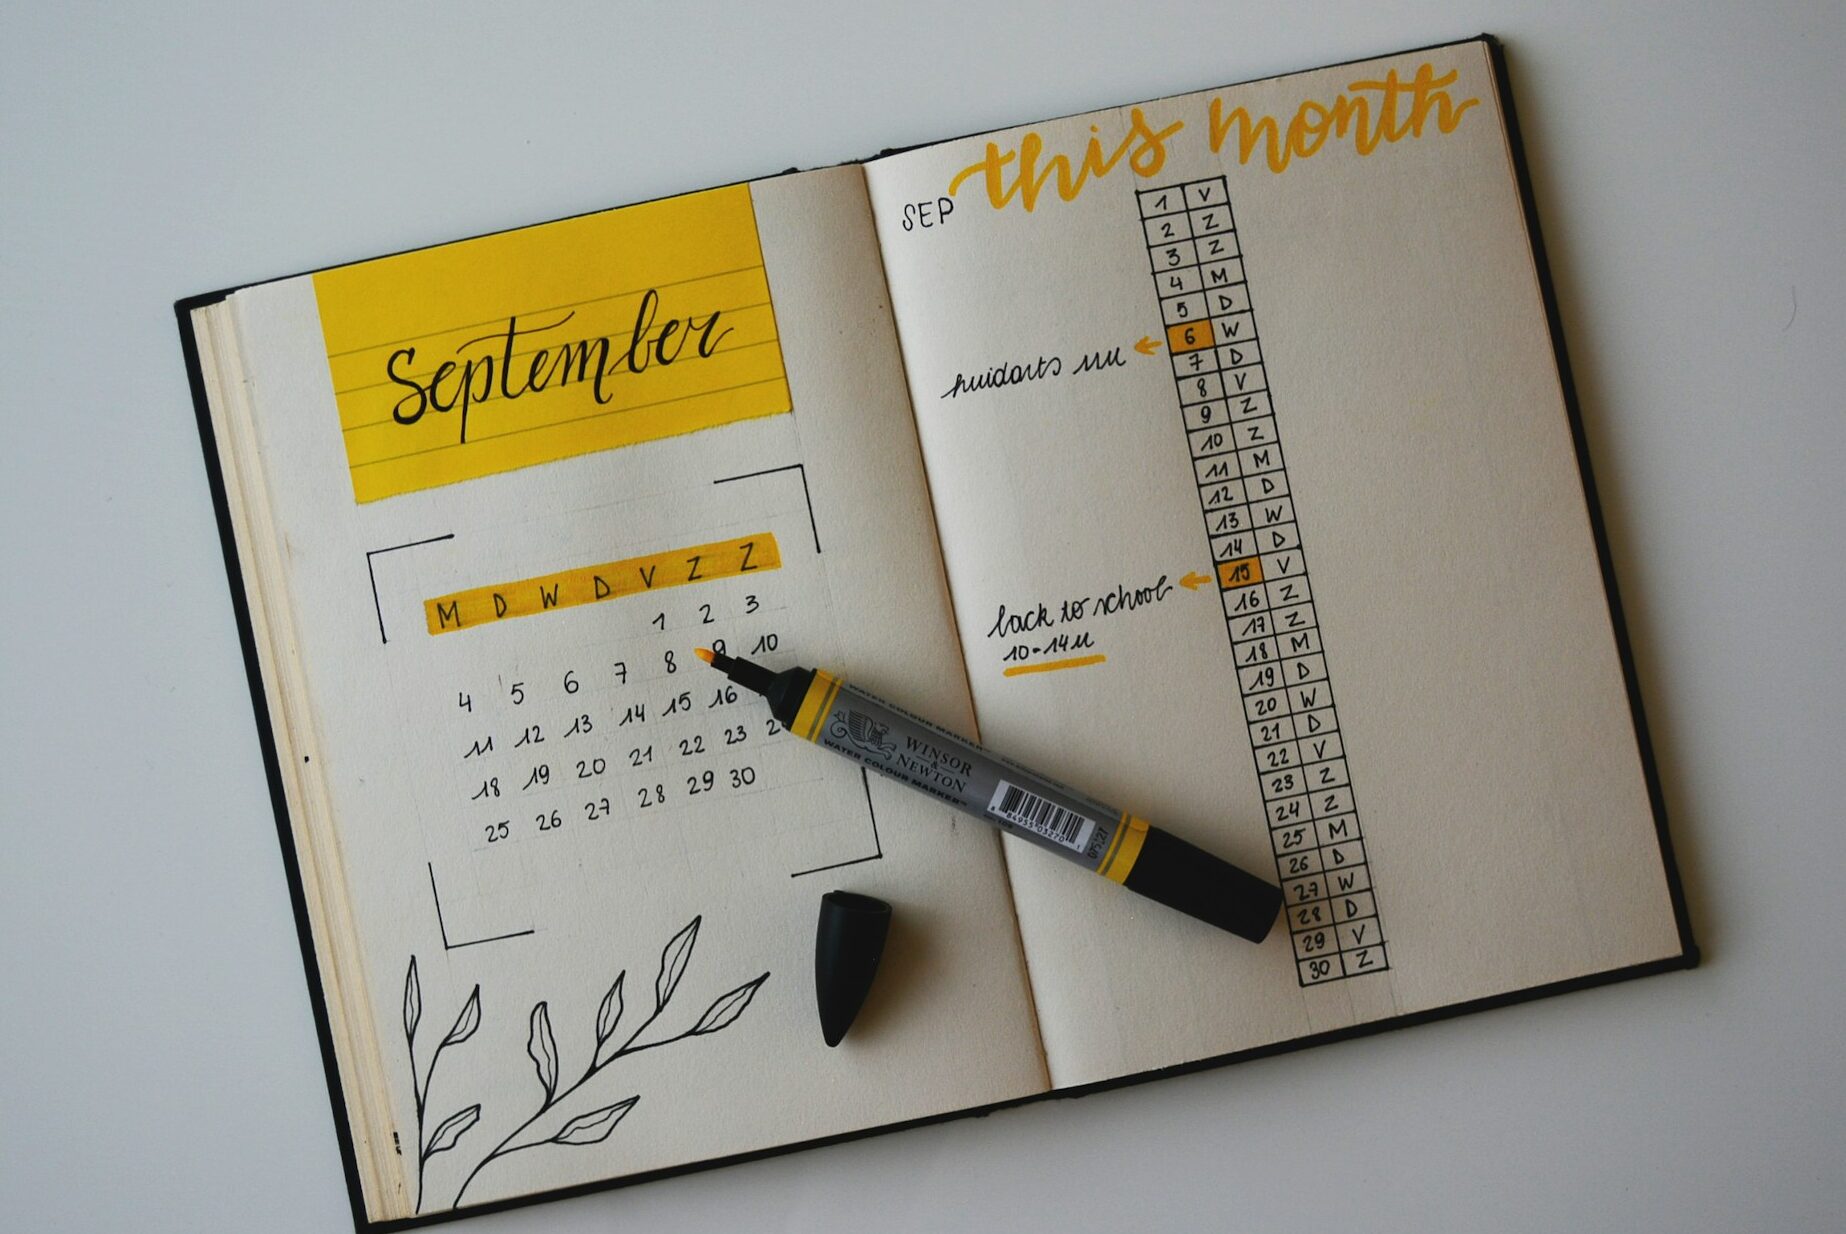 September
M D W D V Z Z
1 2 3
4 5 6 7 8 9 10
11 12 13 14 15 16
18 19 20 21 22 23
25 26 27 28 29 30
this month
SEP
1 V
2 Z
3 Z
4 M
5 D
6 W
7 D
8 V
9 Z
10 Z
11 M
12 D
13 W
14 D
15 V
16 Z
17 Z
18 M
19 D
20 W
21 D
22 V
23 Z
24 Z
25 M
26 D
27 W
28 D
29 V
30 Z
huidarts
back to school
10-14u
WATER COLOUR MARKER
WINSOR
&
NEWTON
WATER COLOUR MARKER™